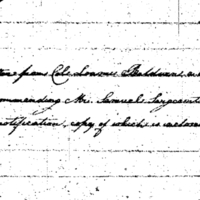 from Col. Loammi Baldwin
ommending Mr. Samuel Sargeant
notification, copy of which is inclosed